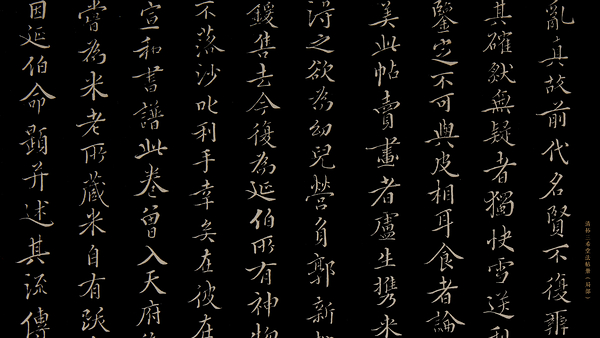 亂真故前代名賢不復
其確然無疑者獨快雪送
鑒定不可與皮相耳食者論
美此帖賣畫者盧生攜來
得之欲為幼兒營負郭新
鍰售去今復為延伯所有神物
不落沙叱利手幸矣在彼在
宣和書譜此卷曾入天府
嘗為米老所藏米自有跋
因延伯命題并述其流傳
清拓三希堂法帖册（局部）